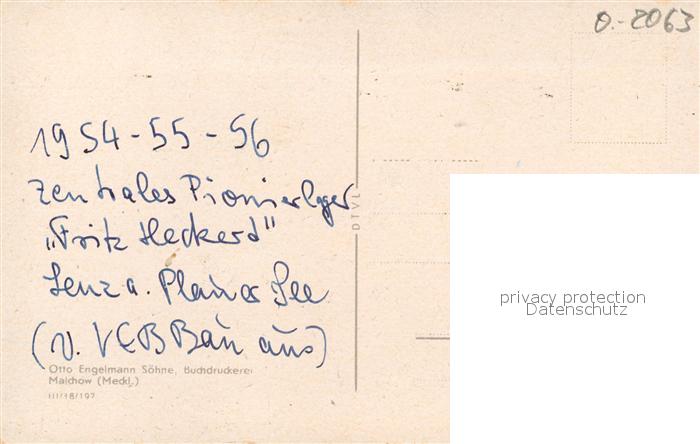 0.-2063
1954-55-56
Zentrales Pionierlager
„Fritz Heckert"
Lenz a. Plauer See
(v. VEB Bau aus)
DTVL
Otto Engelmann Söhne, Buchdruckerei
Malchow (Meckl.)
III/18/197
privacy protection
Datenschutz